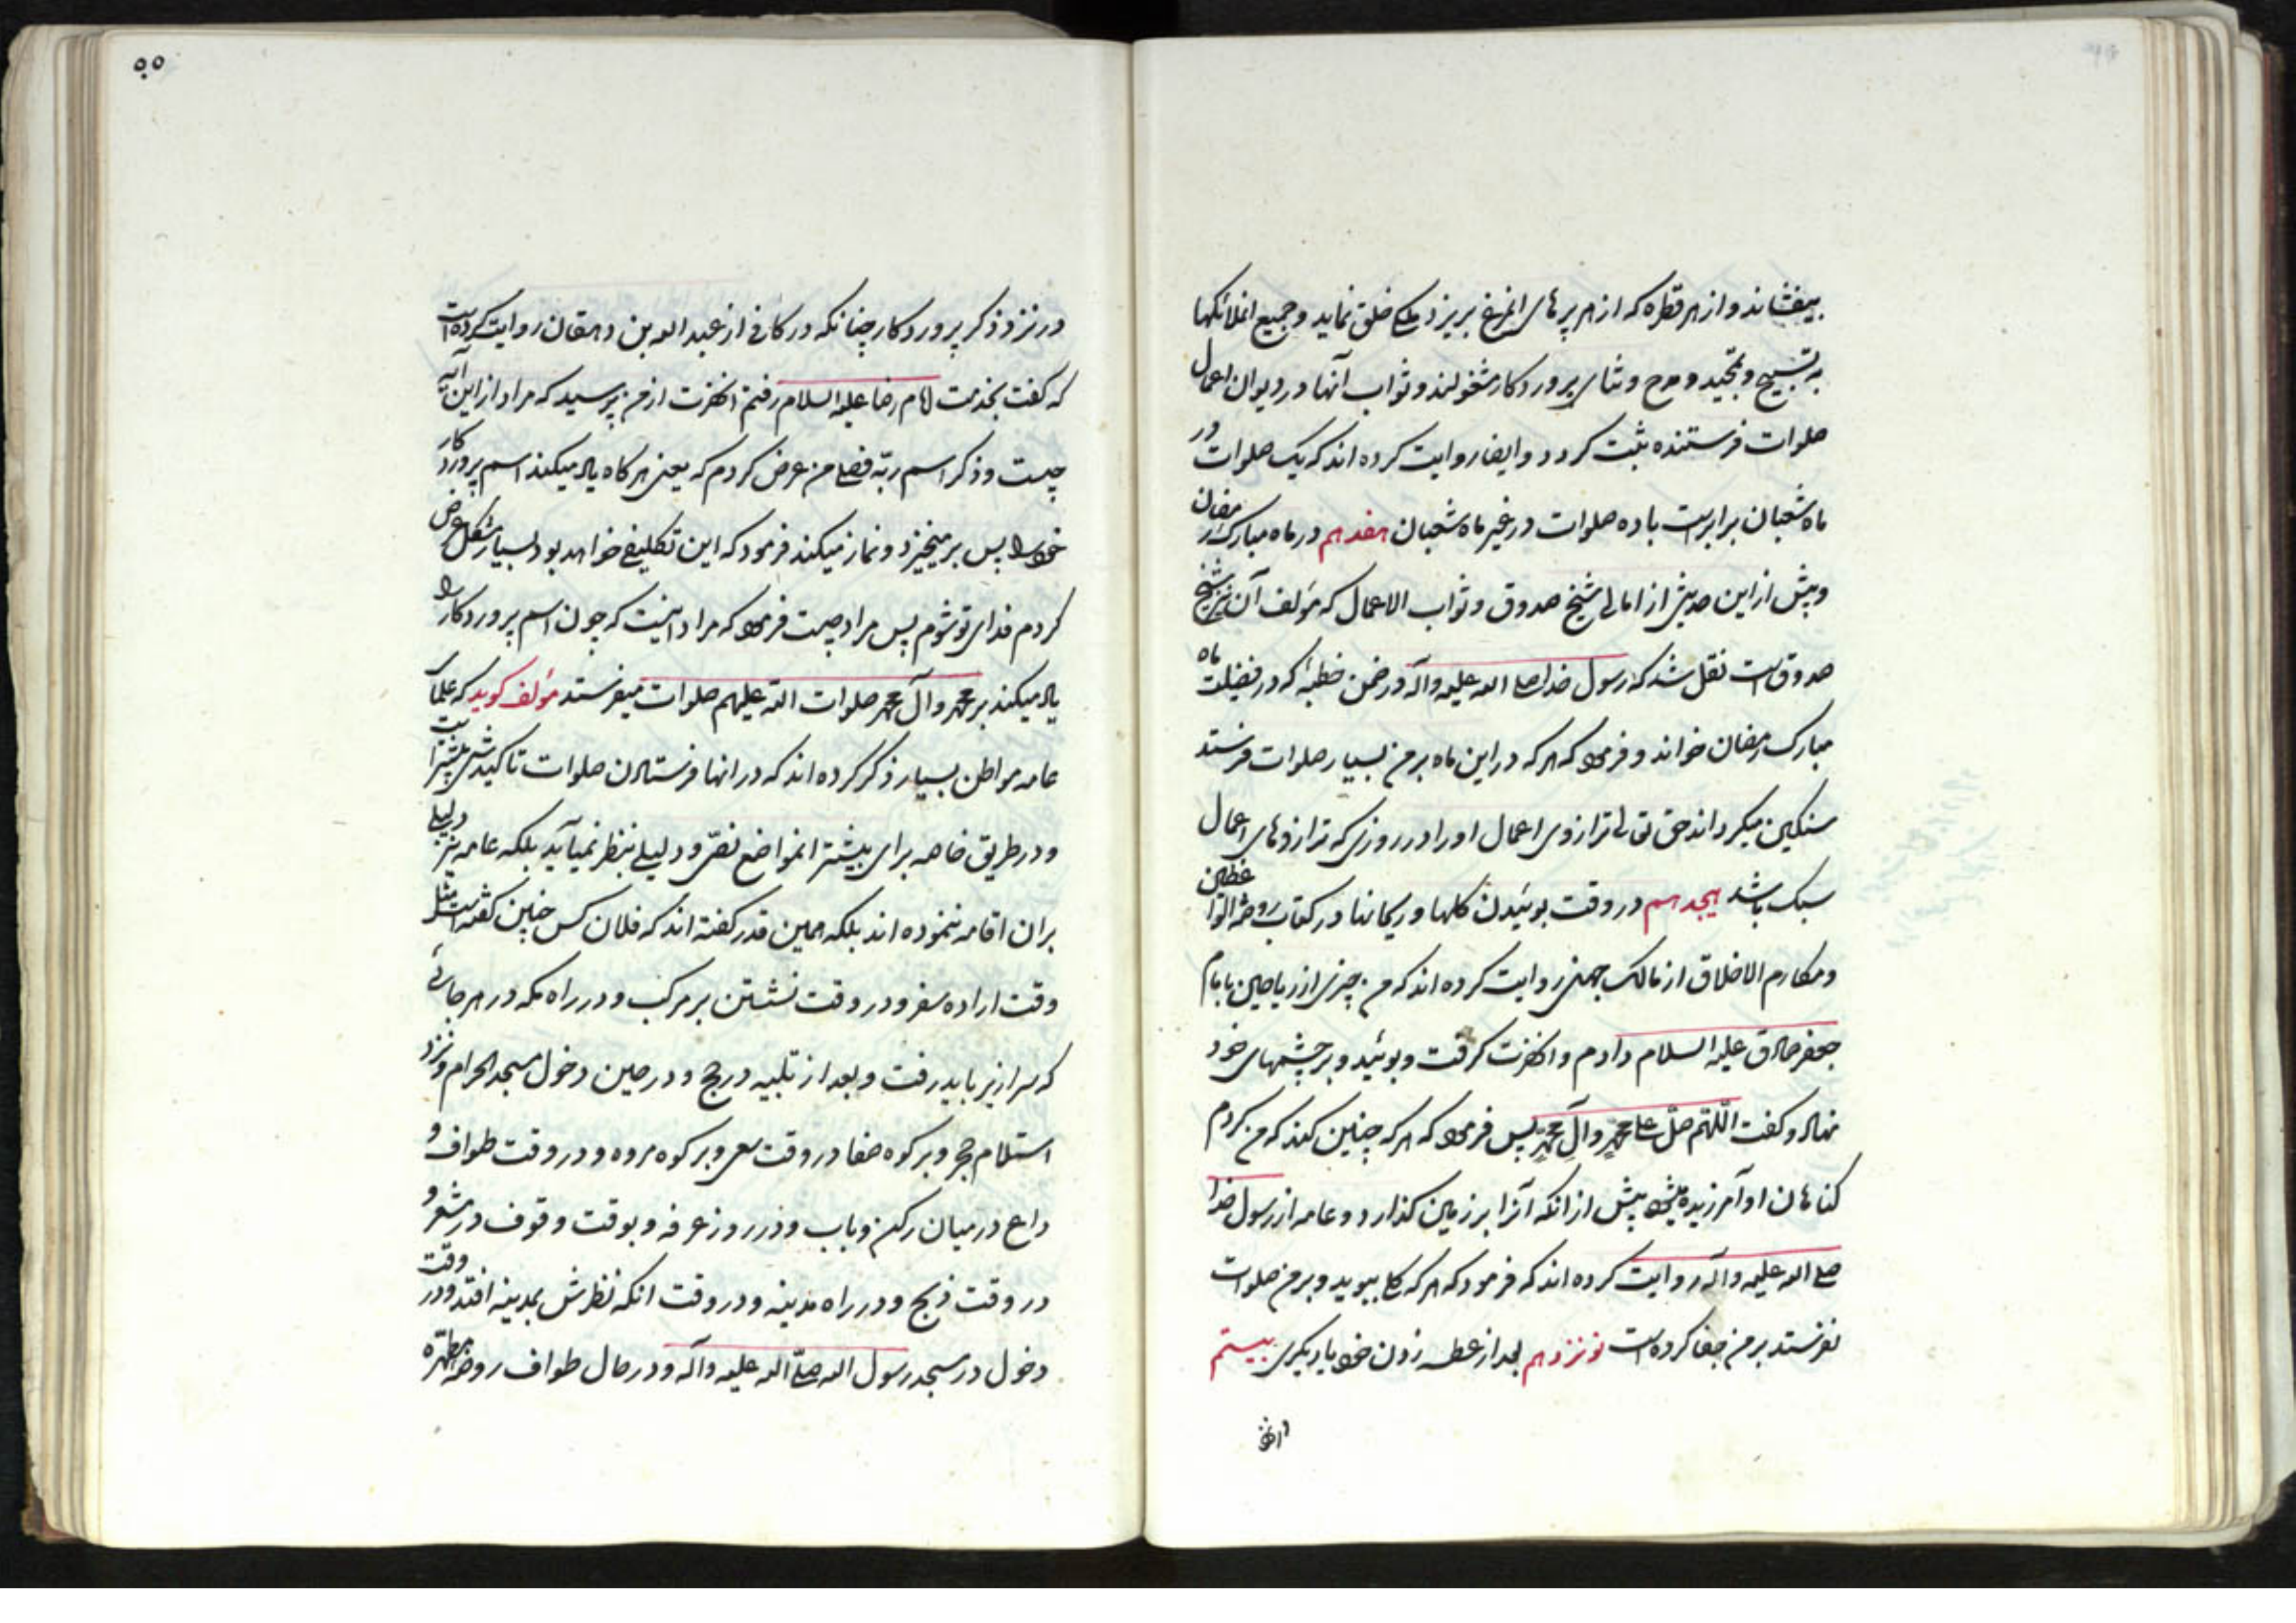 بیفشاند و از هر قطره که از هر پرهای انمرغ بریزد ملکی خلق نماید و جمیع انملائکها
به تسبیح و تمجید و مدح و ثنای پروردکار مشغولند و ثواب آنها در دیوان اعمال
صلوات فرستنده ثبت کردد و ایضا روایت کرده اند که یک صلوات در
ماه شعبان برابرست با ده صلوات در غیر ماه شعبان هفدهم در ماه مبارک رمضان
و پیش از این حدیثی از امالی شیخ صدوق و ثواب الاعمال که مؤلف آن نیز شیخ
صدوق است نقل شد که رسول خدا صلی الله علیه وآله در ضمن خطبۀ که در فضیلت ماه
مبارک رمضان خواند و فرمود که هر که در این ماه بر من بسیار صلوات فرستد
سنکین میکرداند حق تعالی ترازوی اعمال او را در روزی که ترازوهای اعمال
سبک باشد هیجدهم در وقت بوئیدن کلها و ریحانها در کتاب روضه الواعظین
و مکارم الاخلاق از مالک جهنی روایت کرده اند که من چیزی از ریاحین بامام
جعفر صادق علیه السلام دادم و انحضرت کرفت و بوئید و بر چشمهای خود
نهاد و کفت اللّهّم صلّ علی محمدٍ وآلِ محمدٍ پس فرمود که هر که چنین کند که من کردم
کناهان او آمرزیده میشود پیش از انکه آنرا بر زمین کذارد و عامه از رسول خدا
صلی الله علیه وآله روایت کرده اند که فرمود که هر که کل ببوید و بر من صلوات
نفرستد بر من جفا کرده است نوزدهم بعد از عطسه زدن خود یا دیکری بیستم
در نزد
۵۰
در نزد ذکر پروردکار چنانکه در کافی از عبد الله بن دهقان روایت کرده است
که کفت بخدمت امام رضا علیه السلام رفتم انحضرت از من پرسید که مراد از این آیه
چیست وذکر اسم ربّه فصلی من عرض کردم که یعنی هر کاه یاد میکند اسم پروردکار
خود را پس بر میخیزد و نماز میکند فرمود که این تکلیفی خواهد بود بسیار مشکل عرض
کردم فدای تو شوم پس مراد چیست فرمود که مراد اینست که چون اسم پروردکار را
یاد میکند بر محمد وآل محمد صلوات الله علیهم صلوات میفرستد مؤلف کوید که علمآ
عامه مواطن بسیار ذکر کرده اند که در انها فرستادن صلوات تاکیدش بیشتر است
و در طریق خاصه برای بیشتر انمواضع نصّ و دلیلی بنظر نمیآید بلکه عامه نیز دلیلی
بران اقامه ننموده اند بلکه همین قدر کفته اند که فلان کس چنین کفته است مثل
وقت اراده سفر و در وقت نشستن بر مرکب و در راه مکه در هر جائی
که سرازیر باید رفت و بعد از تلبیه در حج و در حین دخول مسجد الحرام و نزد
استلام حجر و بر کوه صفا در وقت سعی و بر کوه مروه و در وقت طواف و
داع در میان رکن وباب و در روز عرفه و بوقت وقوف در مشعر و
در وقت ذبح و در راه مدینه و در وقت انکه نظرش بمدینه افتد و در وقت
دخول در مسجد رسول الله صلّی الله علیه وآله و در حال طواف روضه مطهّره